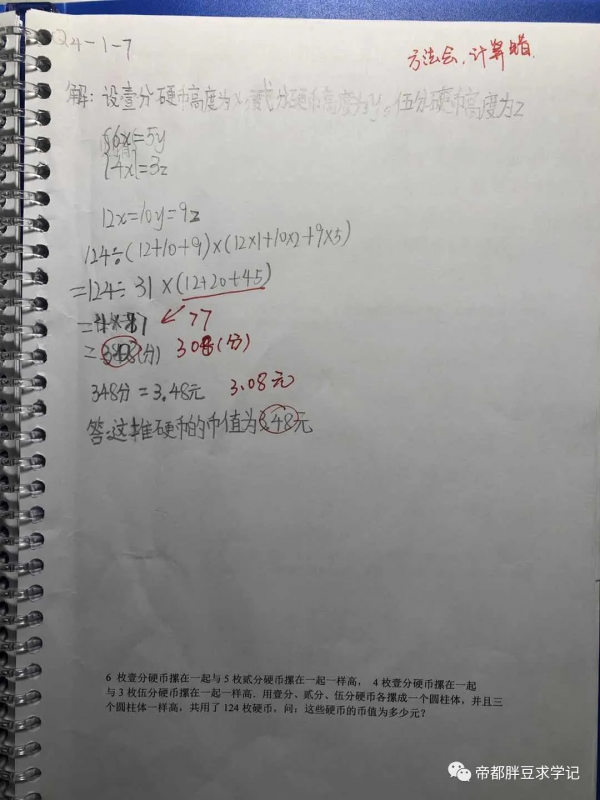 24-1-7
方法会，计算错.
解：设壹分硬币高度为x，贰分硬币高度为y，伍分硬币高度为z
6x=5y
4x=3z
12x=10y=9z
124÷(12+10+9)×(12×1+10×2+9×5)
=124÷31×(12+20+45)
77
=348(分) 308(分)
348分=3.48元 3.08元
答：这堆硬币的币值为3.48元
6 枚壹分硬币摞在一起与 5 枚贰分硬币摞在一起一样高， 4 枚壹分硬币摞在一起
与 3 枚伍分硬币摞在一起一样高. 用壹分、贰分、伍分硬币各摞成一个圆柱体，并且三
个圆柱体一样高，共用了 124 枚硬币，问：这些硬币的币值为多少元？
帝都胖豆求学记